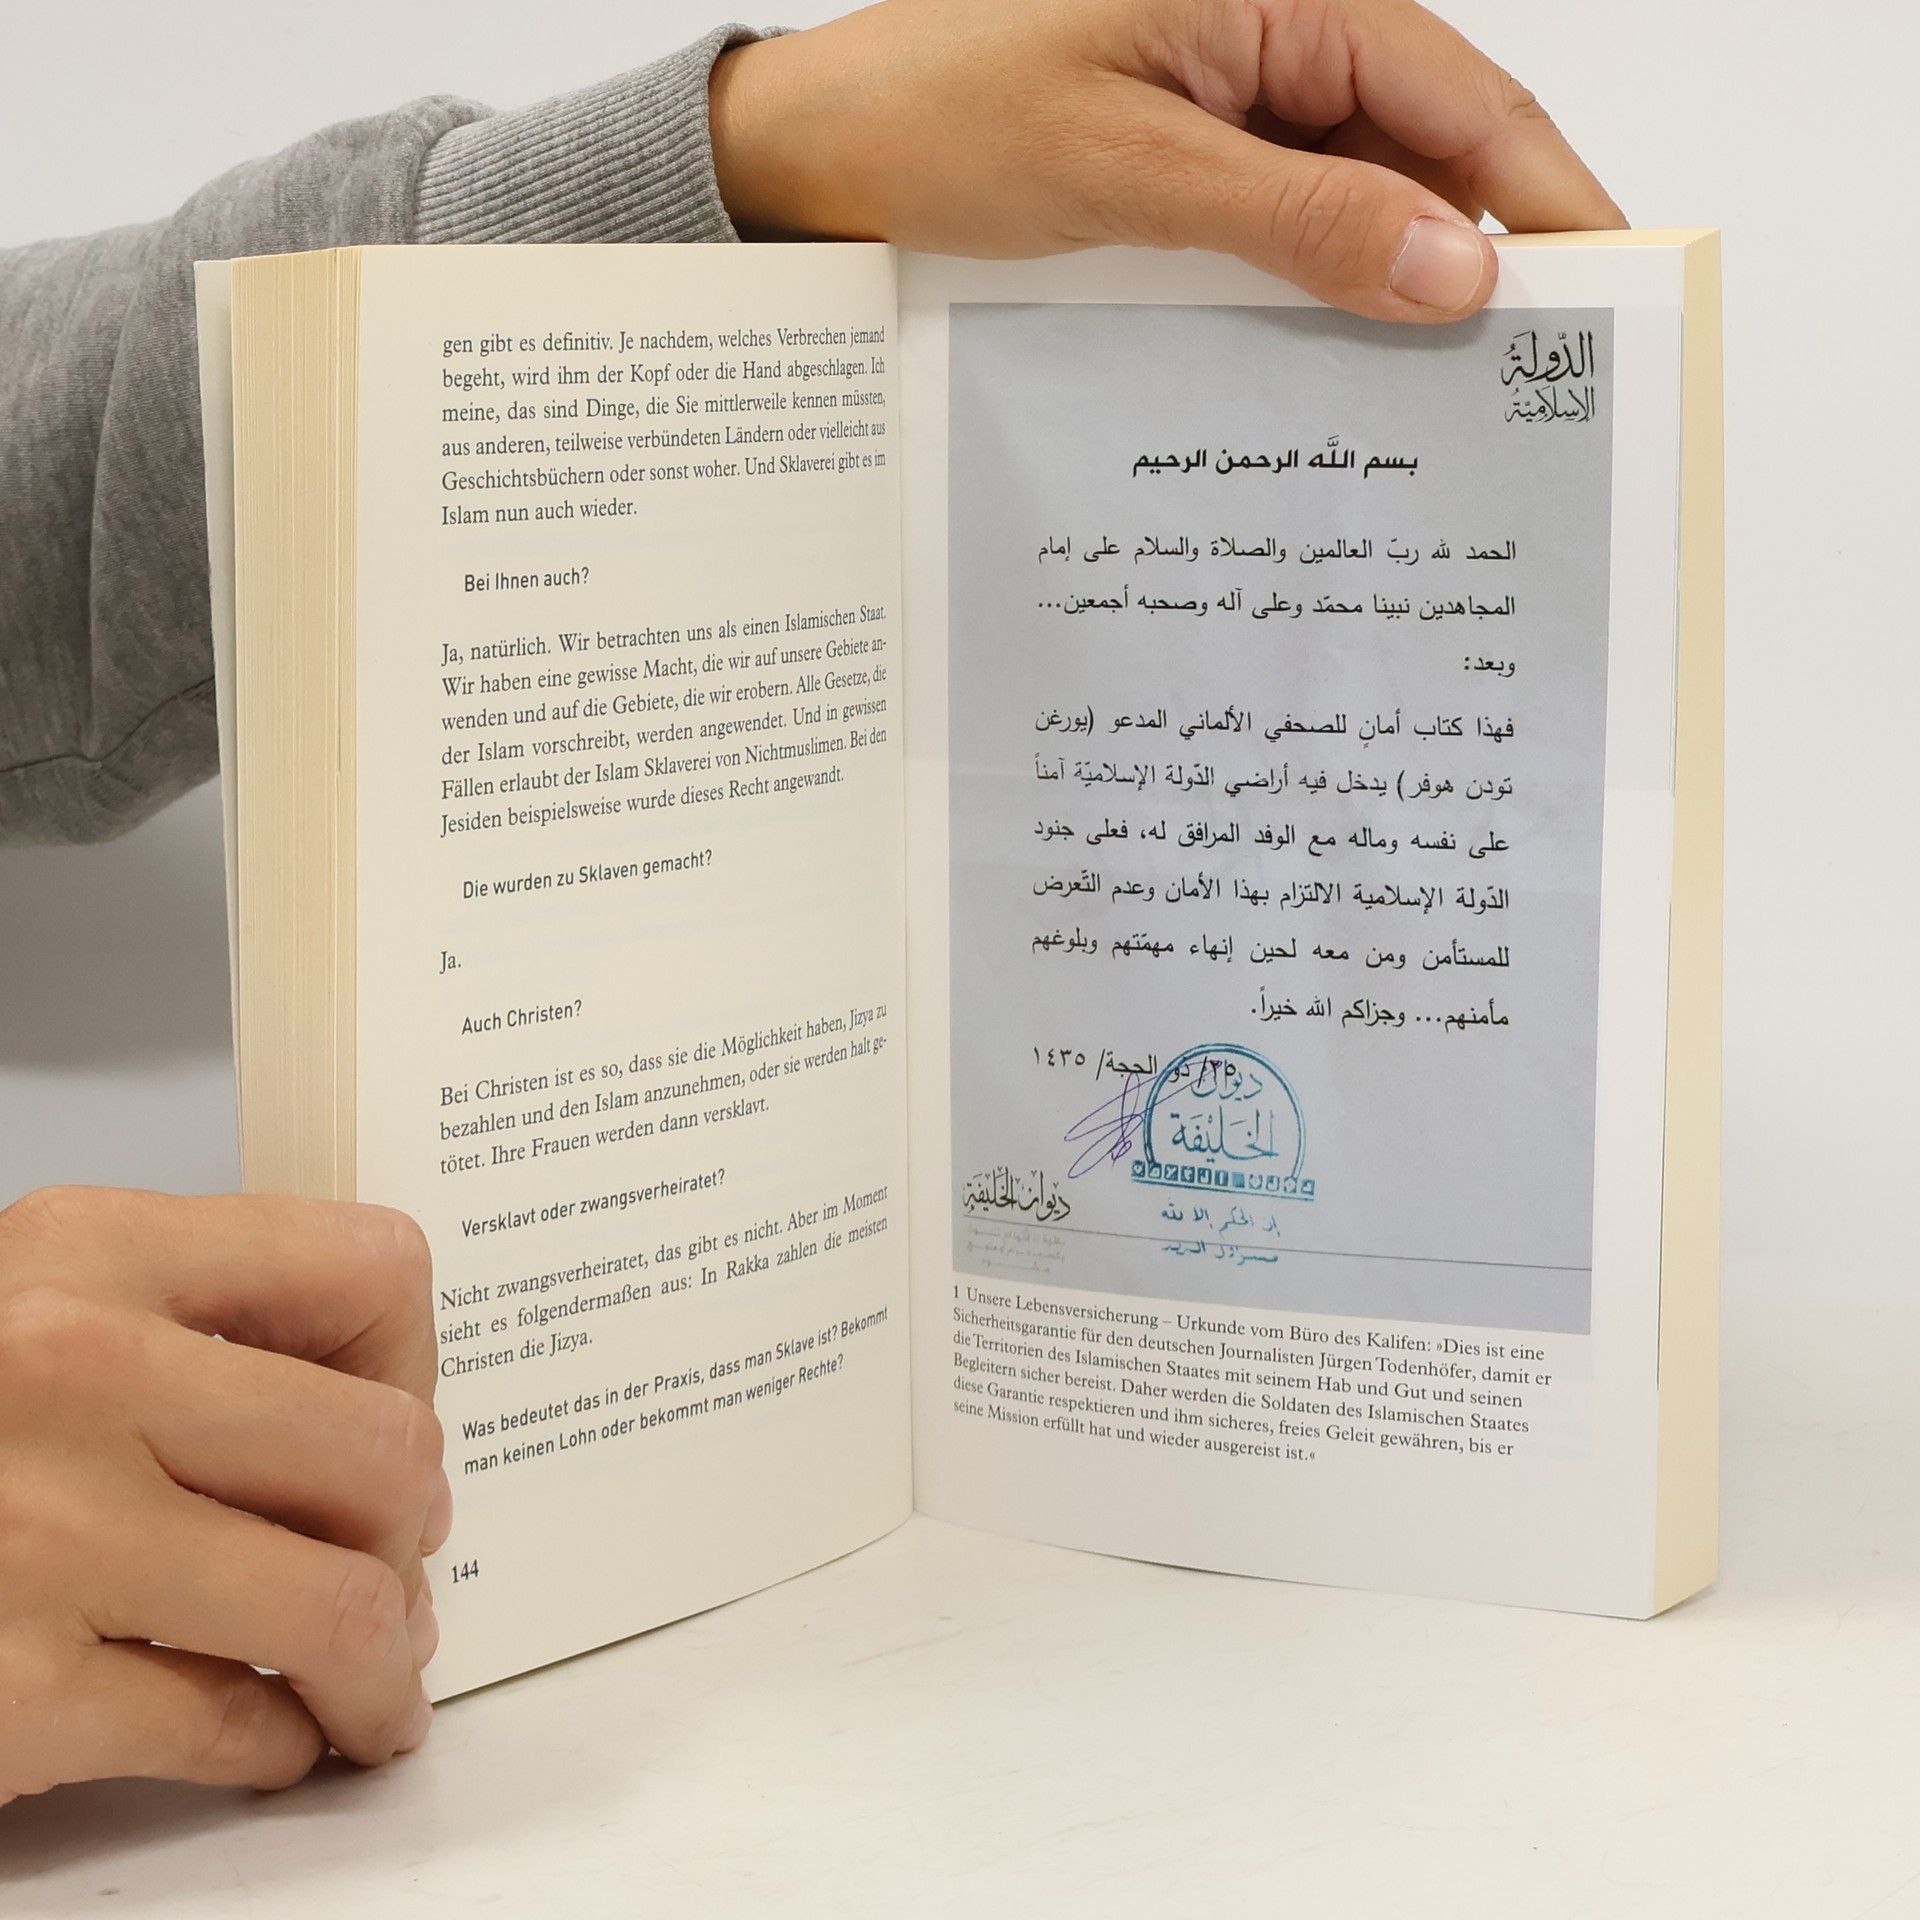 gen gibt es definitiv. Je nachdem, welches Verbrechen jemand
begeht, wird ihm der Kopf oder die Hand abgeschlagen. Ich
meine, das sind Dinge, die Sie mittlerweile kennen müssten,
aus anderen, teilweise verbündeten Ländern oder vielleicht aus
Geschichtsbüchern oder sonst woher. Und Sklaverei gibt es im
Islam nun auch wieder.
Bei Ihnen auch?
Ja, natürlich. Wir betrachten uns als einen Islamischen Staat.
Wir haben eine gewisse Macht, die wir auf unsere Gebiete an-
wenden und auf die Gebiete, die wir erobern. Alle Gesetze, die
der Islam vorschreibt, werden angewendet. Und in gewissen
Fällen erlaubt der Islam Sklaverei von Nichtmuslimen. Bei den
Jesiden beispielsweise wurde dieses Recht angewandt.
Die wurden zu Sklaven gemacht?
Ja.
Auch Christen?
Bei Christen ist es so, dass sie die Möglichkeit haben, Jizya zu
bezahlen und den Islam anzunehmen, oder sie werden halt ge-
tötet. Ihre Frauen werden dann versklavt.
Versklavt oder zwangsverheiratet?
Nicht zwangsverheiratet, das gibt es nicht. Aber im Moment
sieht es folgendermaßen aus: In Rakka zahlen die meisten
Christen die Jizya.
Was bedeutet das in der Praxis, dass man Sklave ist? Bekommt
man keinen Lohn oder bekommt man weniger Rechte?
144
الدّولة
الإسلاميّة
بسم الله الرحمن الرحيم
الحمد لله ربّ العالمين والصلاة والسلام على إمام
المجاهدين نبينا محمّد وعلى آله وصحبه أجمعين...
وبعد:
فهذا كتاب أمانٍ للصحفي الألماني المدعو (يورغن
تودن هوفر) يدخل فيه أراضي الدّولة الإسلاميّة آمناً
على نفسه وماله مع الوفد المرافق له، فعلى جنود
الدّولة الإسلامية الالتزام بهذا الأمان وعدم التّعرض
للمستأمن ومن معه لحين إنهاء مهمّتهم وبلوغهم
مأمنهم... وجزاكم الله خيراً.
ذو الحجة/ ١٤٣٥
ديوان
الخليفة
ديوان الخليفة
إن الحكم إلا لله
1 Unsere Lebensversicherung – Urkunde vom Büro des Kalifen: »Dies ist eine
Sicherheitsgarantie für den deutschen Journalisten Jürgen Todenhöfer, damit er
die Territorien des Islamischen Staates mit seinem Hab und Gut und seinen
Begleitern sicher bereist. Daher werden die Soldaten des Islamischen Staates
diese Garantie respektieren und ihm sicheres, freies Geleit gewähren, bis er
seine Mission erfüllt hat und wieder ausgereist ist.«